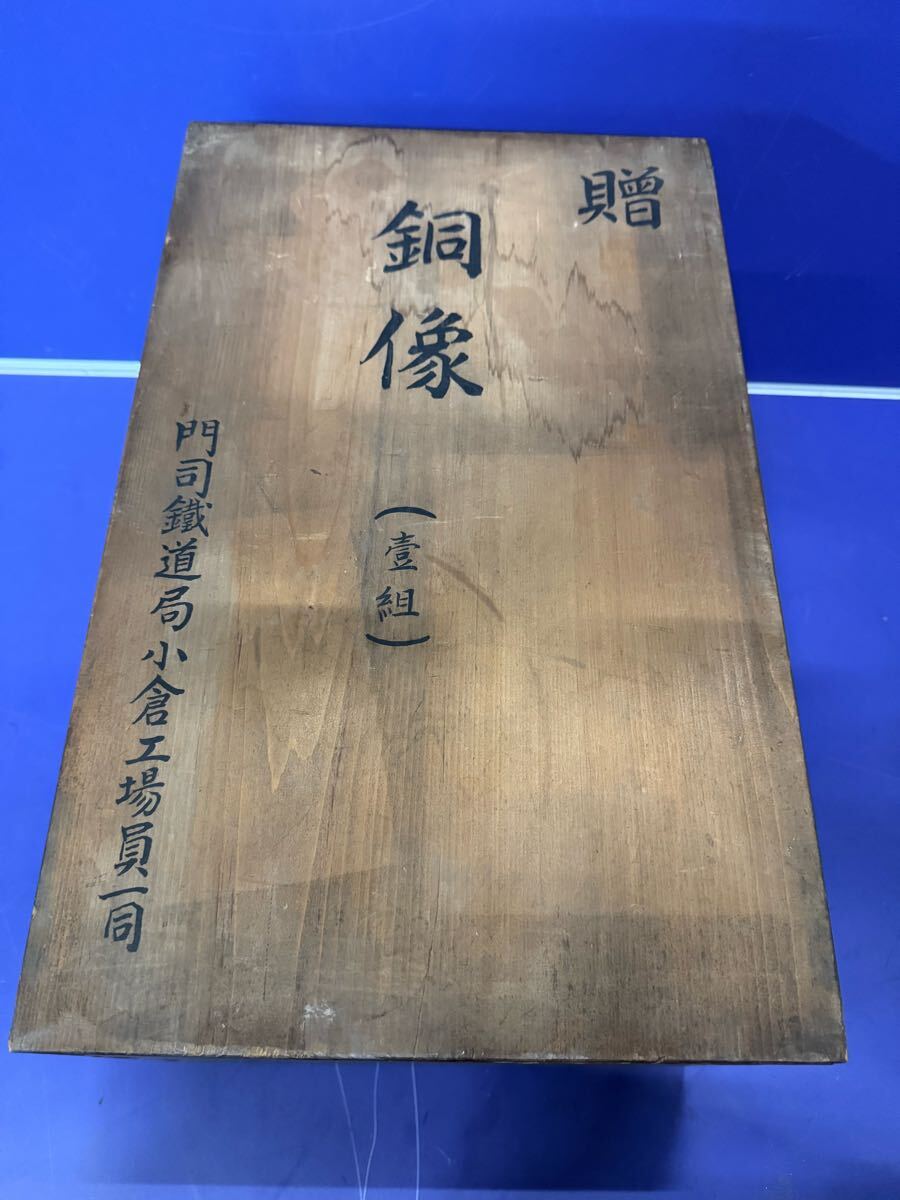 贈
銅像
（壹組）
門司鐵道局小倉工場員一同